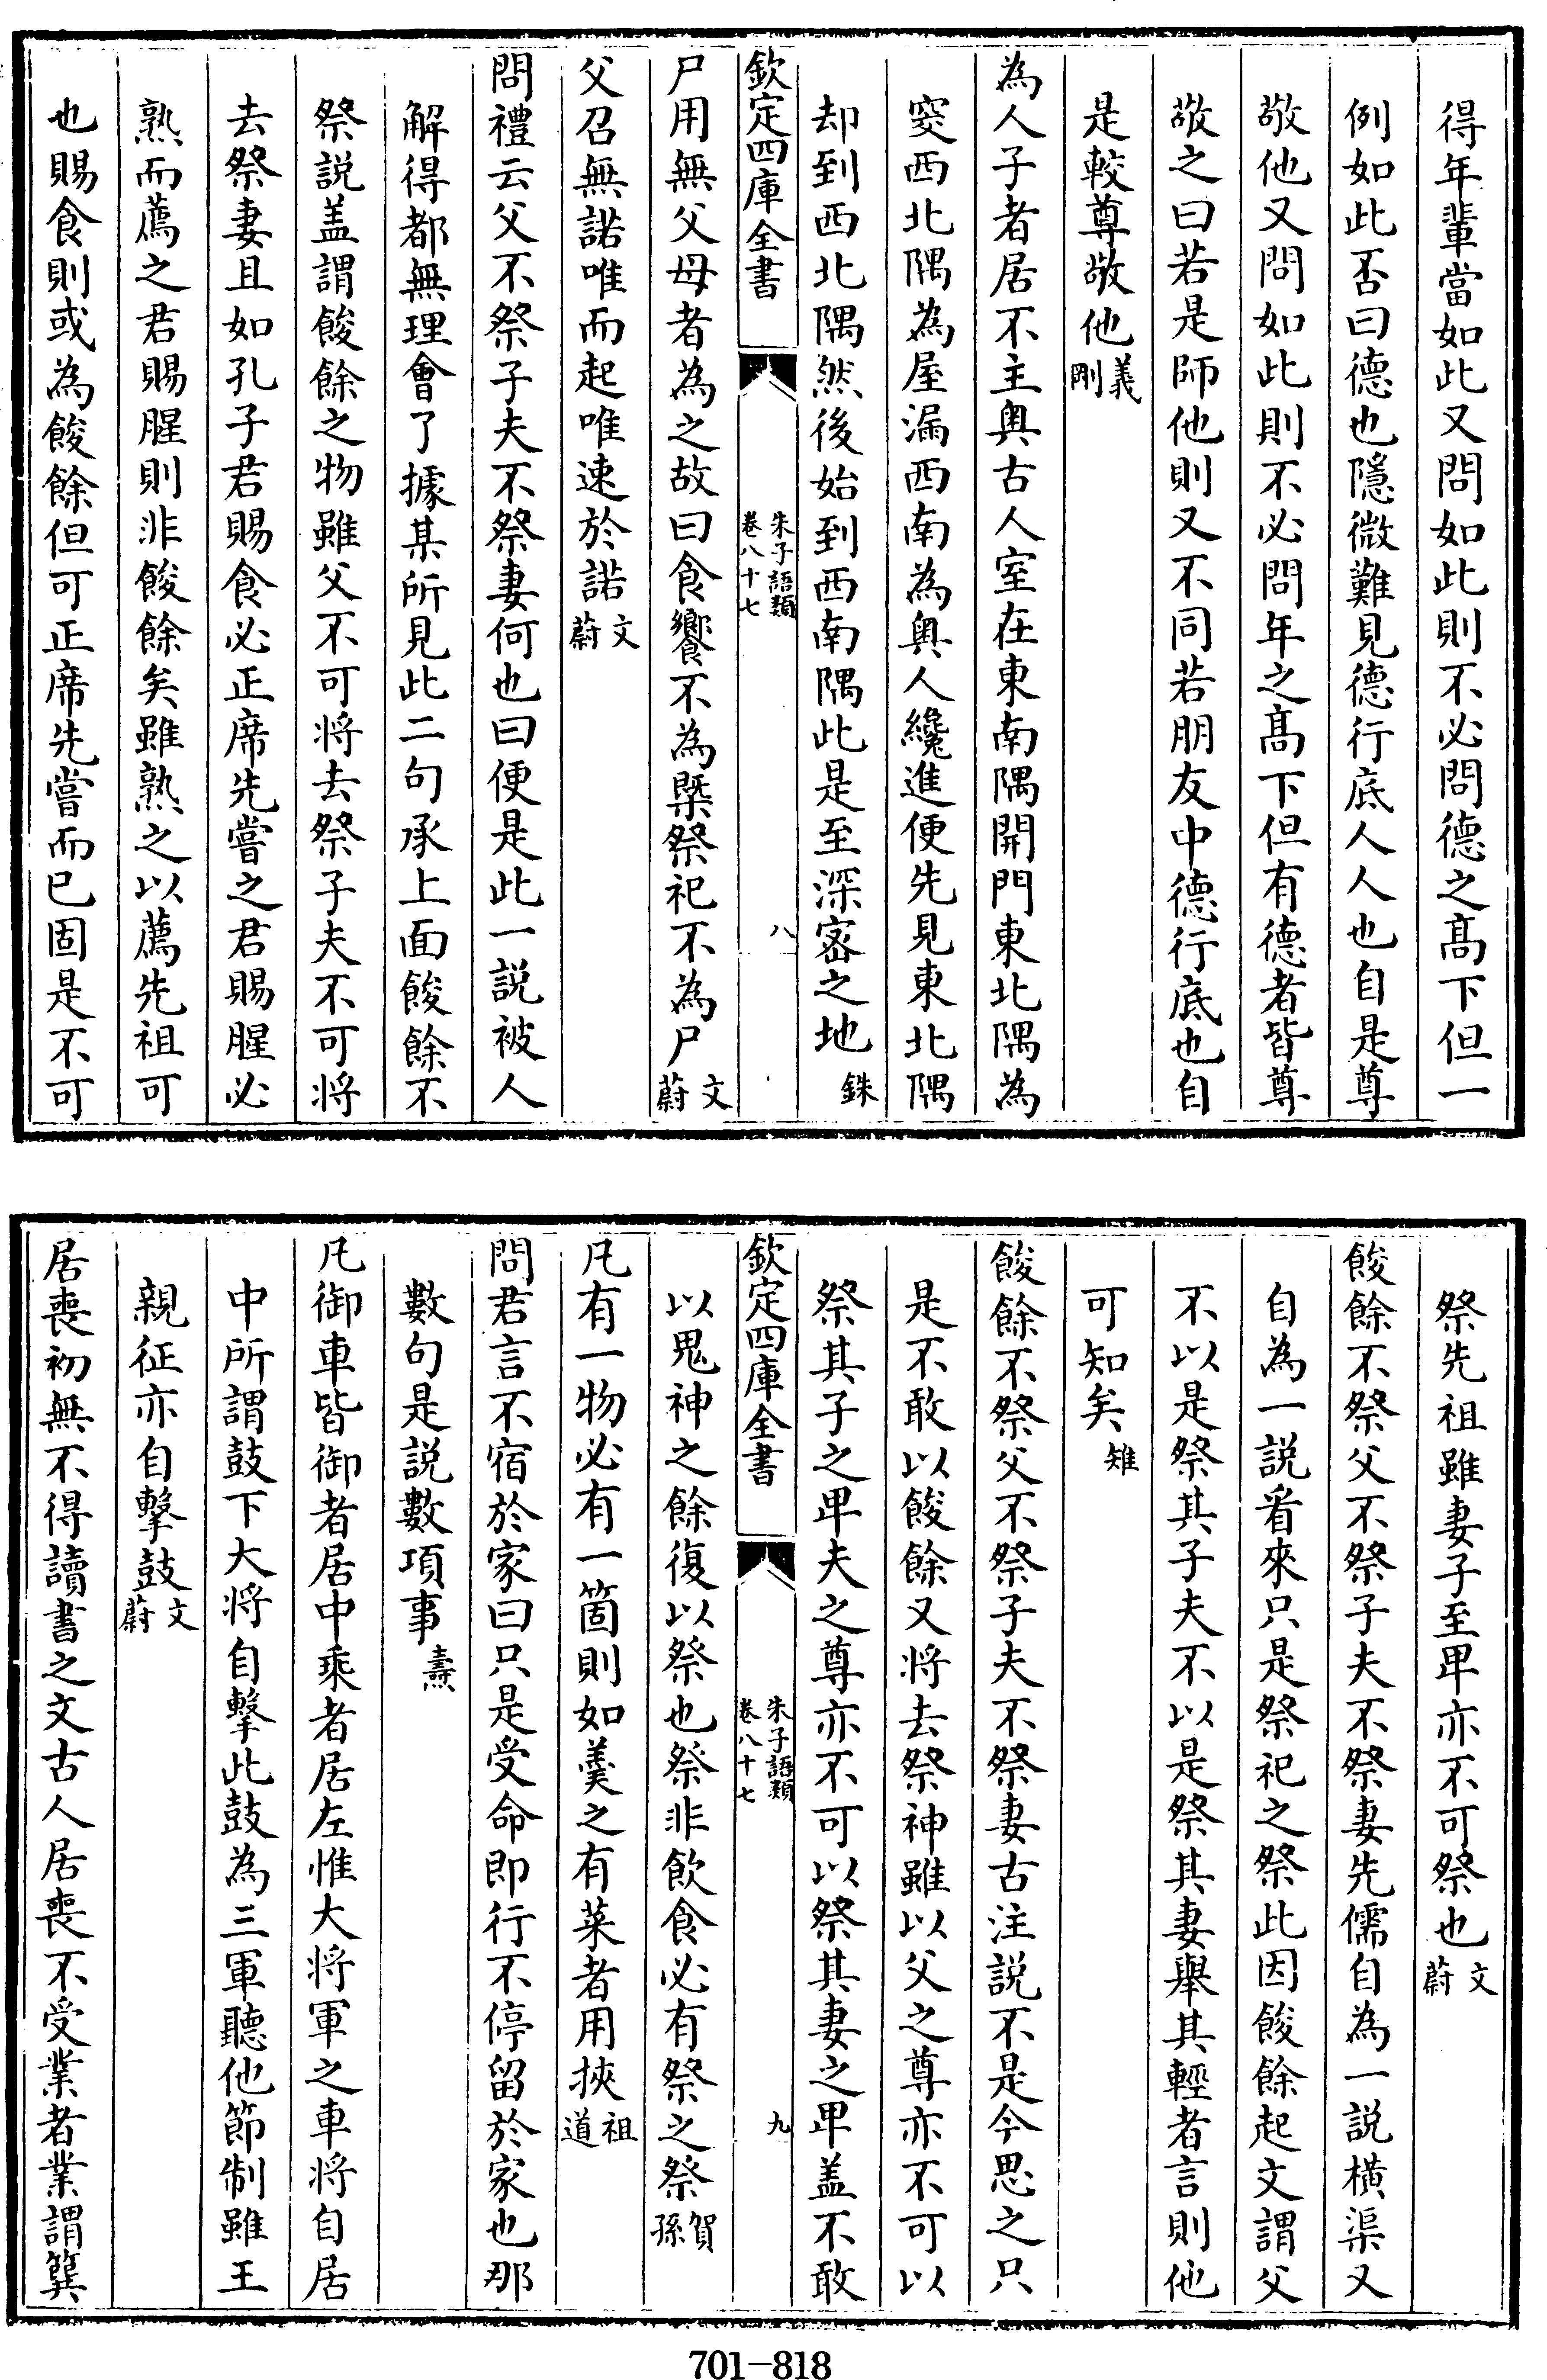 得年輩當如此又問如此則不必問德之髙下但一
例如此否曰德也隱微難見德行底人人也自是尊
敬他又問如此則不必問年之髙下但有德者皆尊
敬之曰若是師他則又不同若朋友中德行底也自
是較尊敬他義剛
為人子者居不主奥古人室在東南隅開門東北隅為
窔西北隅為屋漏西南為奥人纔進便先見東北隅
却到西北隅然後始到西南隅此是至深宻之地銖
欽定四庫全書 朱子語類 卷八十七 八
尸用無父母者為之故曰食饗不為槩祭祀不為尸文蔚
父召無諾唯而起唯速於諾文蔚
問禮云父不祭子夫不祭妻何也曰便是此一説被人
解得都無理會了據某所見此二句承上面餕餘不
祭説盖謂餕餘之物雖父不可将去祭子夫不可将
去祭妻且如孔子君賜食必正席先嘗之君賜腥必
熟而薦之君賜腥則非餕餘矣雖熟之以薦先祖可
也賜食則或為餕餘但可正席先嘗而已固是不可
祭先祖雖妻子至卑亦不可祭也文蔚
餕餘不祭父不祭子夫不祭妻先儒自為一説横渠又
自為一説看來只是祭祀之祭此因餕餘起文謂父
不以是祭其子夫不以是祭其妻舉其輕者言則他
可知矣雉
餕餘不祭父不祭子夫不祭妻古注説不是今思之只
是不敢以餕餘又将去祭神雖以父之尊亦不可以
祭其子之卑夫之尊亦不可以祭其妻之卑盖不敢
欽定四庫全書 朱子語類 卷八十七 九
以鬼神之餘復以祭也祭非飲食必有祭之祭賀孫
凡有一物必有一箇則如羮之有菜者用挾祖道
問君言不宿於家曰只是受命即行不停留於家也那
數句是説數項事燾
凡御車皆御者居中乘者居左惟大将軍之車将自居
中所謂鼓下大将自擊此鼓為三軍聽他節制雖王
親征亦自擊鼓文蔚
居喪初無不得讀書之文古人居喪不受業者業謂簨
701-818